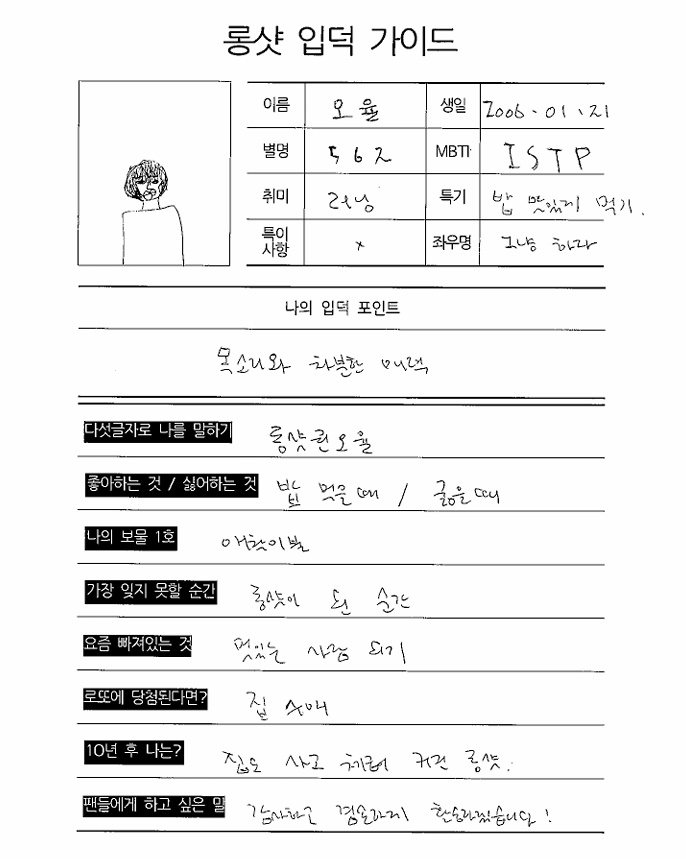 롱샷 입덕 가이드
이름 오율 생일 2006.01.21
별명 562 MBTI ISTP
취미 러닝 특기 밥 맛있게 먹기.
특이사항 x 좌우명 그냥 하자
나의 입덕 포인트
목소리와 차분한 매력
다섯글자로 나를 말하기 롱샷큔오율
좋아하는 것 / 싫어하는 것 밥 먹을때 / 굶을때
나의 보물 1호 애착이불
가장 잊지 못할 순간 롱샷이 된 순간
요즘 빠져있는 것 멋있는 사람 되기
로또에 당첨된다면? 집
10년 후 나는? 집도 사고 커진 롱샷.
팬들에게 하고 싶은 말 감사하고 겸손하게 하겠습니다!